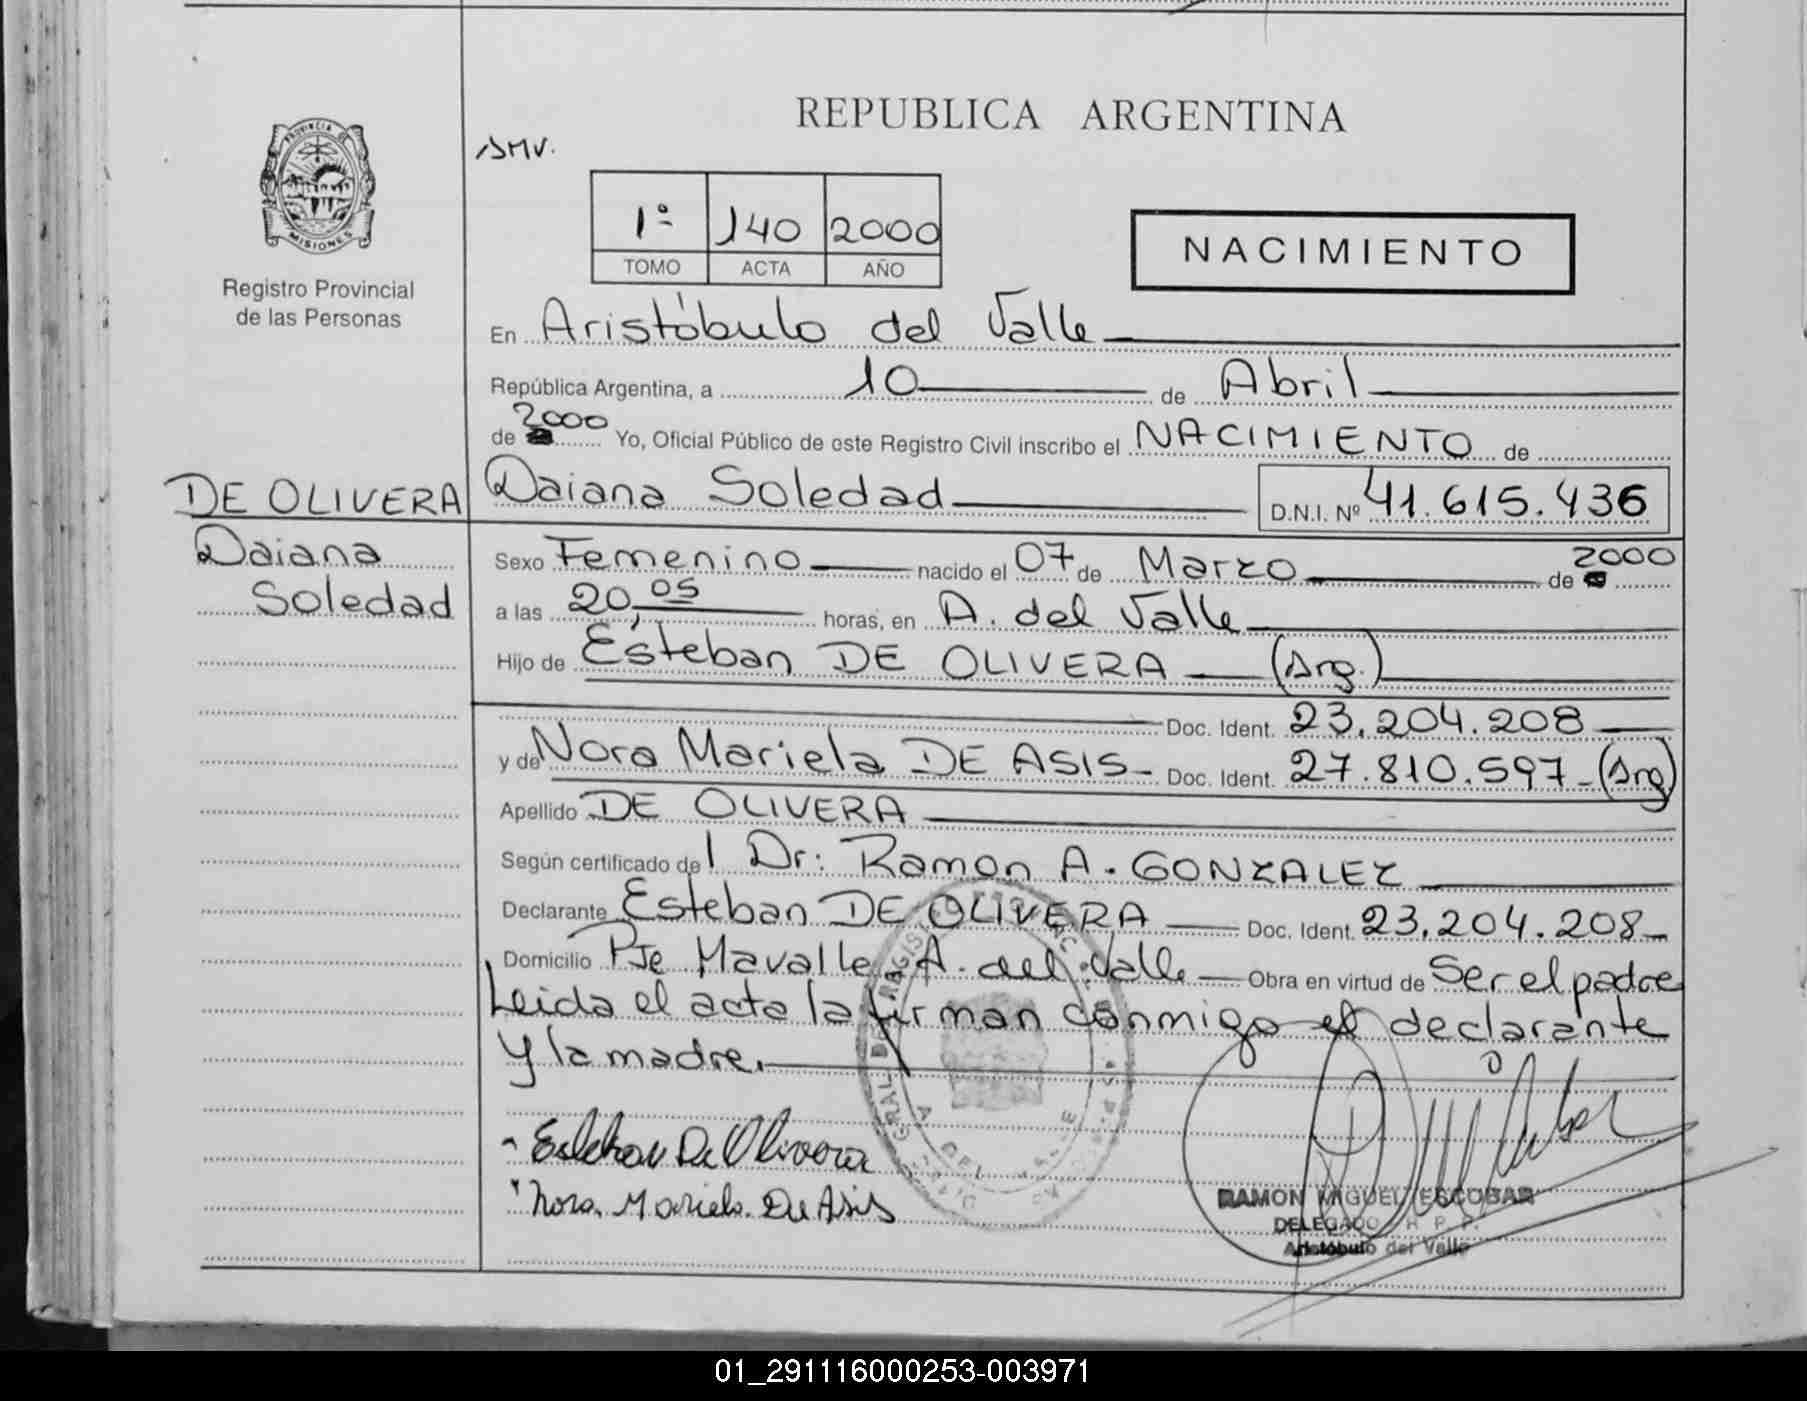 REPUBLICA ARGENTINA
SMV.
PROVINCIA DE
MISIONES
1º 140 2000
TOMO ACTA AÑO
NACIMIENTO
Registro Provincial
de las Personas
En Aristóbulo del Valle
República Argentina, a 10 de Abril
de 2000 Yo, Oficial Público de este Registro Civil inscribo el NACIMIENTO de
DE OLIVERA
Daiana Soledad D.N.I. Nº 41.615.436
Daiana
Soledad
Sexo Femenino nacido el 07 de Marzo de 2000
a las 20,05 horas, en A. del Valle
Hijo de Esteban DE OLIVERA (Arg.)
Doc. Ident. 23.204.208
y de Nora Mariela DE ASIS Doc. Ident. 27.810.597 (Arg)
Apellido DE OLIVERA
Según certificado del Dr: Ramon A. GONZALEZ
Declarante Esteban DE OLIVERA Doc. Ident. 23.204.208
Domicilio Pje Mavalle A. del Valle Obra en virtud de Ser el padre
Leida el acta la firman conmigo el declarante
y la madre.
Esteban De Olivera
Nora Mariela De Asis
RAMON MIGUEL ESCOBAR
DELEGADO R P. P.
Aristóbulo del Valle
01_291116000253-003971